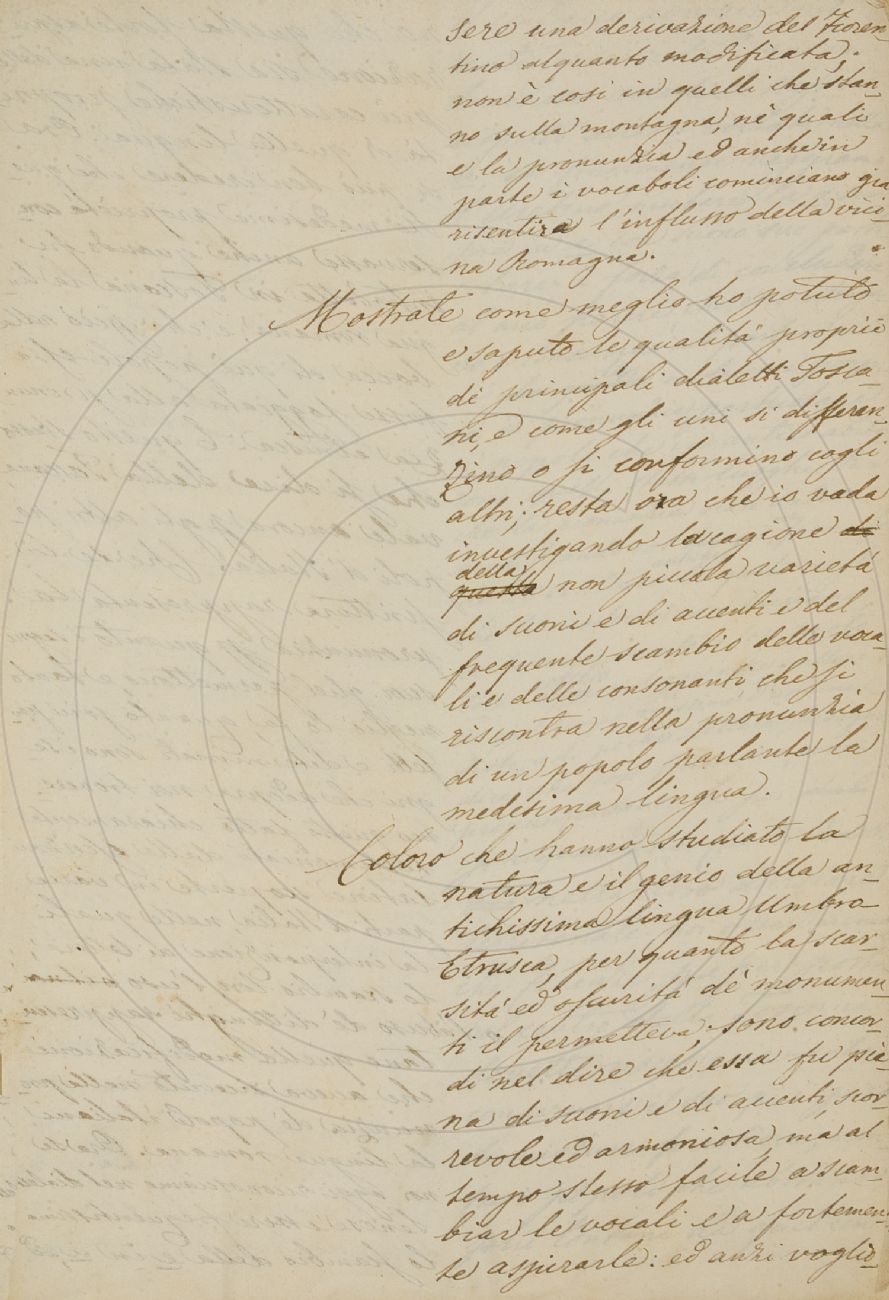 sere una derivazione del Fioren-
tino alquanto modificata;
non è così in quelli che stan-
no sulla montagna, nè quali
e la pronunzia ed anche in
parte i vocaboli cominciano già
risentira l'influsso della vici-
na Romagna.
Mostrate come meglio ho potuto
e saputo le qualità proprie
dè principali dialetti Tosca-
ni, e come gli uni si differen-
zino o si conformino cogli
altri; resta ora che io vada
investigando la cagione di
della
questa non piccola varietá
di suoni e di accenti e del
frequente scambio delle voca-
li e delle consonanti che si
riscontra nella pronunzia
di un popolo parlante la
medesima lingua.
Coloro che hanno studiato la
natura e il genio della an-
tichissima lingua Umbro-
Etrusca, per quanto la scar-
sitá ed oscuritá dè monumen-
ti il permetteva, sono concor-
di nel dire che essa fu pie-
na di suoni e di accenti, scor-
revole ed armoniosa, má al
tempo stesso facile a scam-
biar le vocali e a fortemen-
te aspirarle: ed anzi voglio-